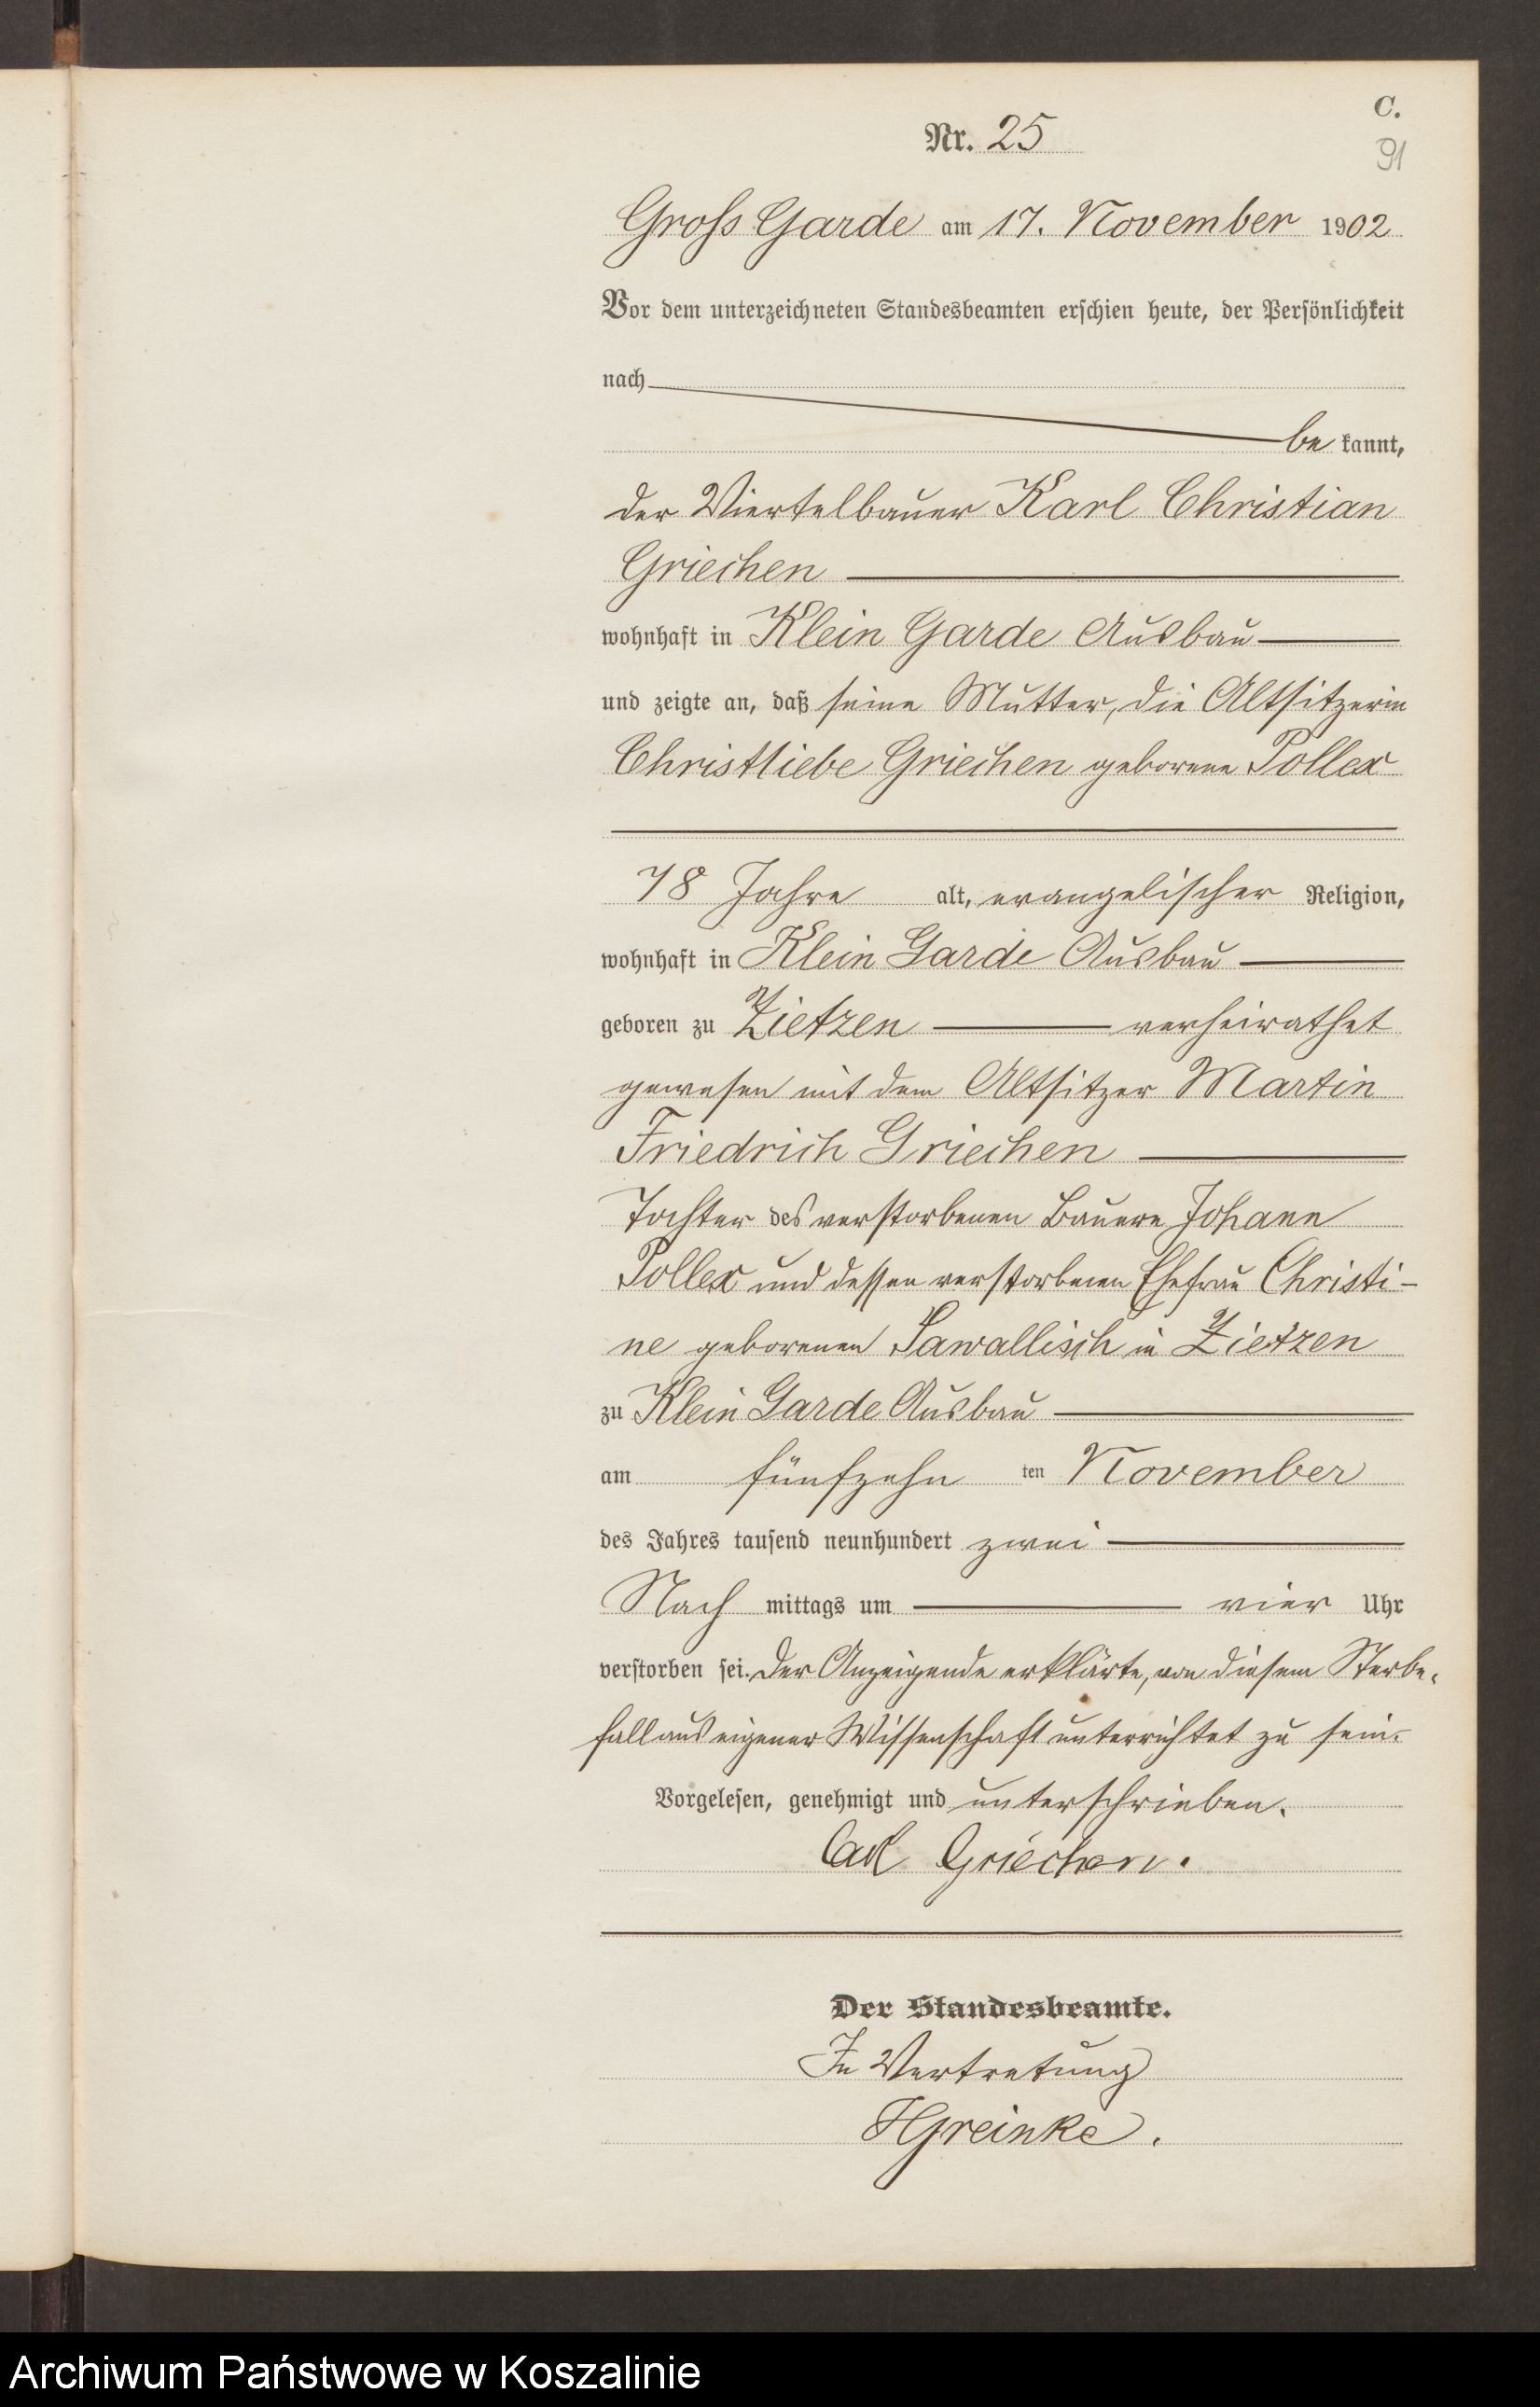 C.
Nr. 25
91
Gross Garde am 17. November 1902
Vor dem unterzeichneten Standesbeamten erschien heute, der Persönlichkeit
nach
be kannt,
der Viertelbauer Karl Christian
Griechen
wohnhaft in Klein Garde Ausbau
und zeigte an, daß seine Mutter, die Altsitzerin
Christliebe Griechen geborene Pollex
78 Jahre alt, evangelischer Religion,
wohnhaft in Klein Garde Ausbau
geboren zu Zietzen verheirathet
gewesen mit dem Altsitzer Martin
Friedrich Griechen
Tochter des verstorbenen Bauern Johann
Pollex und dessen verstorbenen Ehefrau Christi-
ne geborenen Sawallisch in Zietzen
zu Klein Garde Ausbau
am fünfzehn ten November
des Jahres tausend neunhundert zwei
Nach mittags um vier Uhr
verstorben sei. Der Anzeigende erklärte, von diesem Sterbe-
fall aus eigener Wissenschaft unterrichtet zu sein.
Vorgelesen, genehmigt und unterschrieben.
Carl Griechen.
Der Standesbeamte.
In Vertretung
HGreinke.
Archiwum Państwowe w Koszalinie